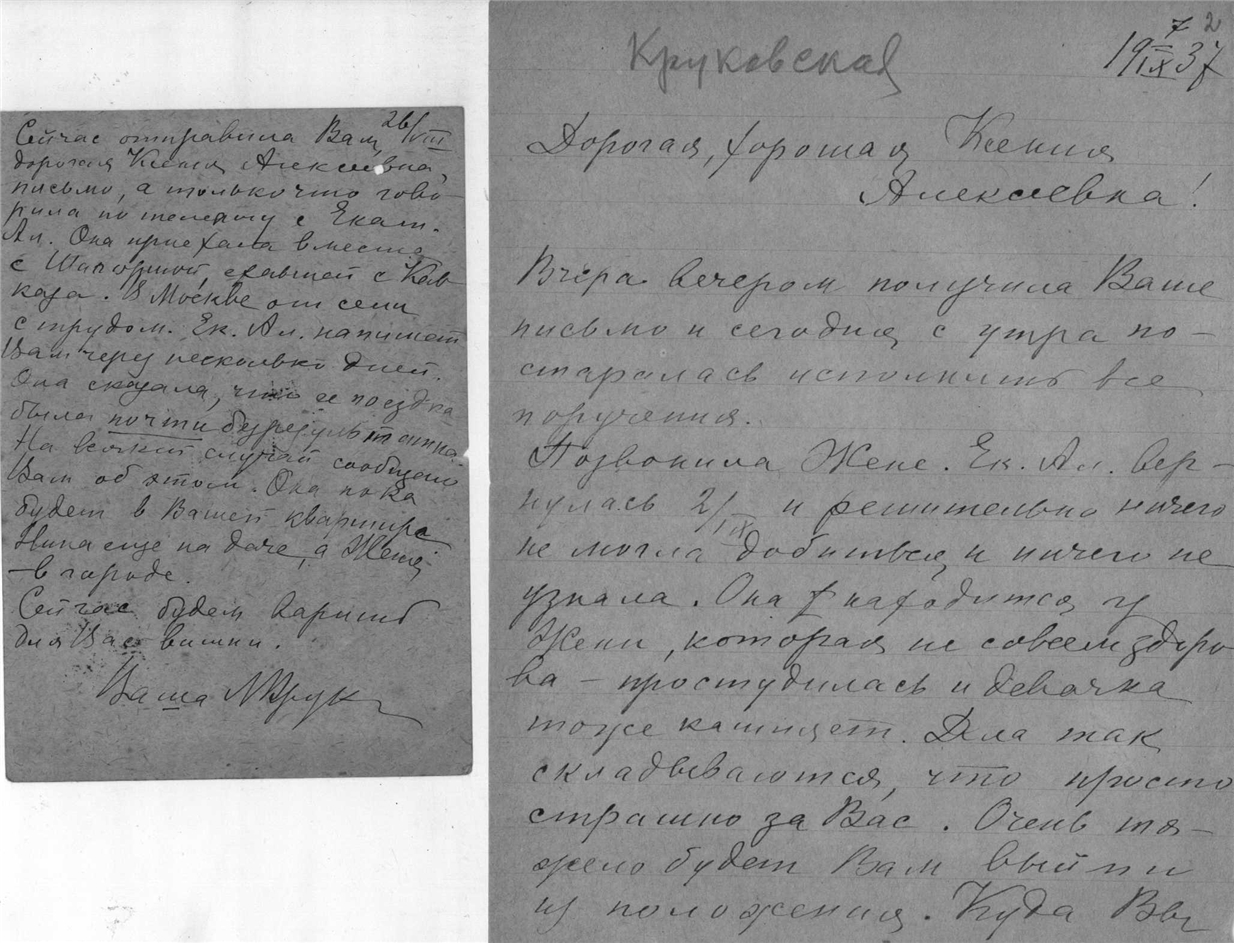 26/VIII
Сейчас отправила Вам,
дорогая Ксения Алексеевна,
письмо, а только что гово-
рила по телефону с Екат.
Ал. Она приехала вместе
с Шапориной, ехавшей с Кав-
каза. В Москве они сели
с трудом. Ек. Ал. напишет
Вам через несколько дней.
Она сказала, что ее поездка
была почти безрезультатна.
На всякий случай сообщаю
Вам об этом. Она пока
будет в Вашей квартире
Нина еще на даче, а Женя
– в городе.
Сейчас будем варить
для Вас вишни.
Ваша МКрук
2
Круковская
19 7/IX 37
Дорогая, хорошая Ксения
Алексеевна!
Вчера вечером получила Ваше
письмо и сегодня с утра по-
старалась исполнить все
поручения.
Позвонила Жене. Ек. Ал. вер-
нулась 2/IX и решительно ничего
не могла добиться и ничего не
узнала. Она находится у
Жени, которая не совсем здоро-
ва – простудилась и девочка
тоже кашляет. Дела так
складываются, что просто
страшно за Вас. Очень тя-
жело будет Вам выйти
из положения. Куда Вы